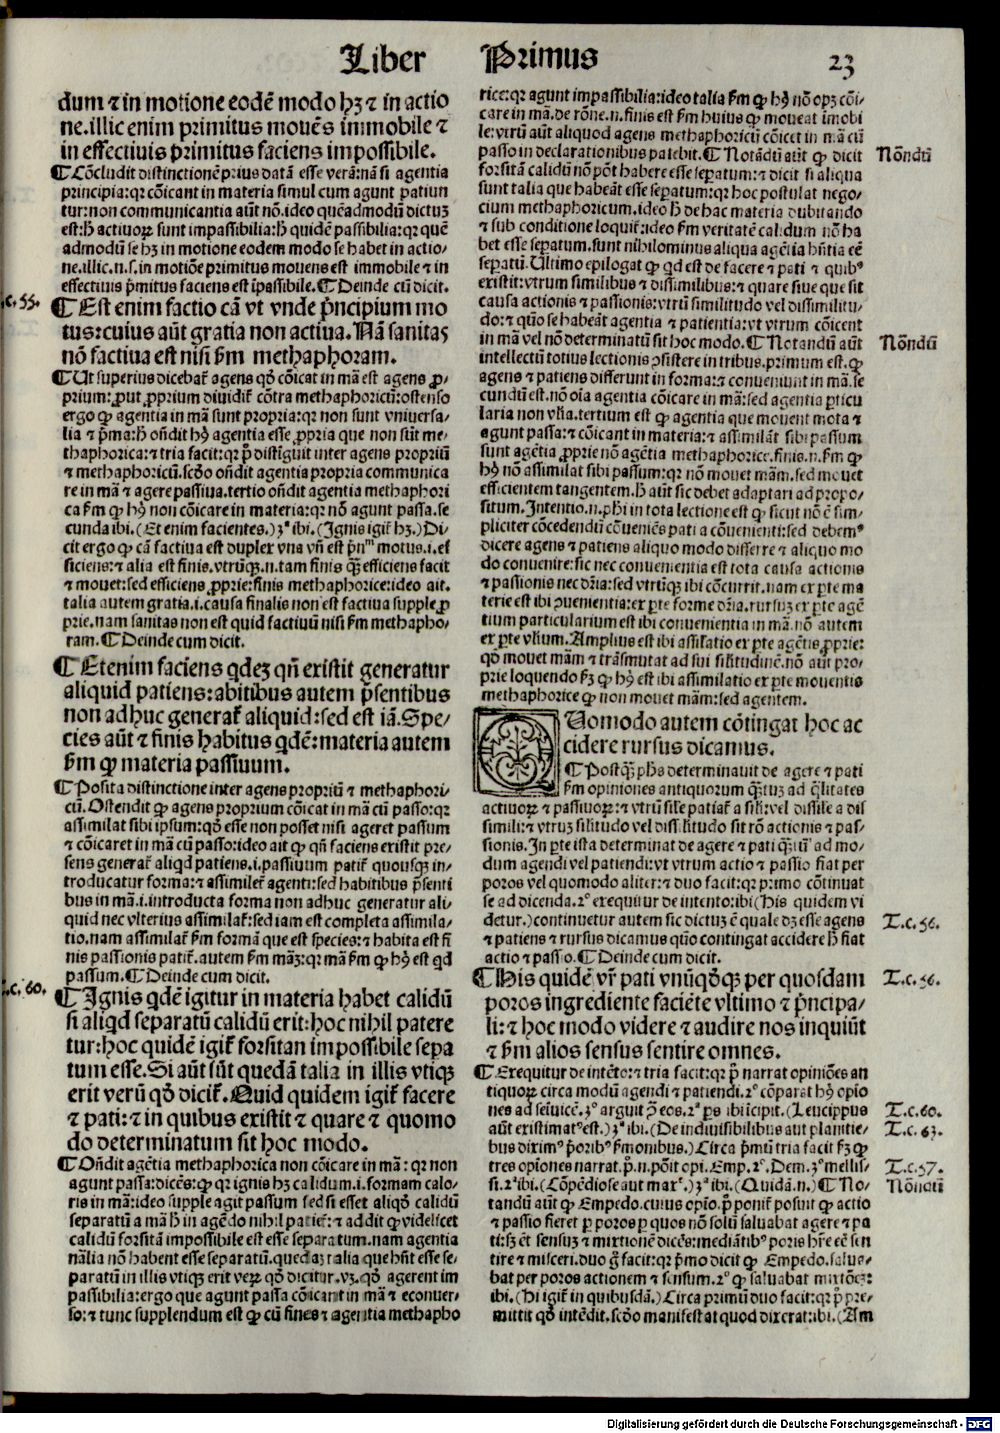 Liber Primus 23
dum ⁊ in motione eodē modo hꝫ ⁊ in actio
ne.illic enim primitus mouēs immobile ⁊
in effectiuis primitus faciens impossibile.
¶ Cōcludit distinctionē prius datā esse verā:nā si agentia
principia:qr cōicant in materia simul cum agunt patiun
tur:non communicantia aūt nō.ideo quēadmodū dictuꝫ
est:h̄ actiuoꝝ sunt impassibilia:h̄ quidē passibilia:qr quē
admodū se hꝫ in motione eodem modo se habet in actio/
ne.illic.n.s.in motiōe primitus mouens est immobile ⁊ in
effectiuis p̄mitus faciens est ip̄assibile.¶ Deinde cū dicit.
.c. 55.
¶ Est enim factio cā vt vnde p̄ncipium mo
tus:cuius aūt gratia non actiua. Nā sanitas
nō factiua est nisi ẜm methaphoram.
¶ Ut superius dicebat̄ agens qd̄ cōicat in mā est agens ꝓ/
prium:ꝓut ꝓprium diuidit̄ cōtra methaphoricū:ostenso
ergo ꝙ agentia in mā sunt propria:qr non sunt vniuersa/
lia ⁊ p̄ma:h̄ oñdit hꝰ agentia esse ꝓpria que non sūt me/
thaphorica:⁊ tria facit:qr p̄ distīguit inter agens propriū
⁊ methaphoricū.scd̄o oñdit agentia propria communica
re in mā ⁊ agere passiua.tertio oñdit agentia methaphori
ca ẜm ꝙ hꝰ non cōicare in materia:qr nō agunt passa.se
cunda ibi.(Et enim facientes.)3ᵃ ibi.(Ignis igit̄ hꝫ.)Di/
cit ergo ꝙ cā factiua est duplex vna vñ est p̄nᵐ motus.i.ef
ficiens:⁊ alia est finis.vtrūqꝫ.n.tam finis q̄ꝫ efficiens facit
⁊ mouet:sed efficiens ꝓprie:finis methaphorice:ideo ait.
talia autem gratia.i.causa finalis non est factiua supple ꝓ
prie.nam sanitas non est quid factiuū nisi ẜm methapho/
ram.¶ Deinde cum dicit.
¶ Etenim faciens qdeꝫ qn̄ existit generatur
aliquid patiens:abitibus autem p̄sentibus
non adhuc generat̄ aliquid:sed est iā.Spe/
cies aūt ⁊ finis habitus qdē:materia autem
ẜm ꝙ materia passiuum.
¶ Posita distinctione inter agens propriū ⁊ methaphori/
cū.Ostendit ꝙ agens proprium cōicat in mā cū passo:qr
assimilat sibi ipsum:qd̄ esse non posset nisi ageret passum
⁊ cōicaret in mā cū passo:ideo ait ꝙ qn̄ faciens existit pre/
sens generat̄ aliqd patiens.i.passiuum patit̄ quousqꝫ in/
troducatur forma:⁊ assimilet̄ agenti:sed habitibus p̄senti
bus in mā.i.introducta forma non adhuc generatur ali/
quid nec vlterius assimilat̄:sed iam est completa assimila/
tio.nam assimilat̄ ẜm formā que est species:⁊ habita est fi
nis passionis patit̄.autem ẜm māꝫ:qr mā ẜm ꝙ hꝰ est qd
passum.¶ Deinde cum dicit.
.c. 60.
¶ Ignis qdē igitur in materia habet calidū
si aliqd separatū calidū erit:hoc nihil patere
tur:hoc quidē igit̄ forsitan impossibile sepa
tum esse.Si aūt sūt quedā talia in illis vtiqꝫ
erit verū qd̄ dicit̄.Quid quidem igit̄ facere
⁊ pati:⁊ in quibus existit ⁊ quare ⁊ quomo
do determinatum sit hoc modo.
¶ Oñdit agētia methaphorica non cōicare in mā: qr non
agunt passa:dicēs:ꝙ qr ignis hꝫ calidum.i.formam calo/
ris in mā:ideo supple agit passum sed si esset aliqd̄ calidū
separatū a mā h̄ in agēdo nihil patiet̄:⁊ addit ꝙ videlicet
calidū forsitā impossibile est esse separatum.nam agentia
nālia nō habent esse separatū.quedaꝫ talia que hn̄t esse se/
paratū in illis vtiqꝫ erit veꝝ qd̄ dicitur.vꝫ.qd̄ agerent im
passibilia:ergo que agunt passa cōicant in mā ⁊ econuer/
so:⁊ tunc supplendum est ꝙ cū fines ⁊ agentia methapho
rice:qr agunt impassibilia:ideo talia ẜm ꝙ hꝰ nō opꝫ cōi/
care in mā.de rōne.n.finis est ẜm huius ꝙ moueat īmobi
le:vtrū aūt aliquod agens methaphoricū cōicet in mā cū
passo in declarationibus patebit.¶ Notādū aūt ꝙ dicit
Nōndū
forsitā calidū nō pōt habere esse sepatum:⁊ dicit si aliqua
sunt talia que habeāt esse sepatum:qr hoc postulat nego/
cium methaphoricum.ideo h̄ de hac materia dubitando
⁊ sub conditione loquit̄:ideo ẜm veritatē calidum nō ha
bet esse sepatum.sunt nihilominus aliqua agētia hn̄tia eē
sepatū.Ultimo epilogat ꝙ qd est de facere ⁊ pati ⁊ quibꝰ
existit:vtrum similibus ⁊ dissimilibus:⁊ quare siue que sit
causa actionis ⁊ passionis:vtrū similitudo vel dissimilitu/
do:⁊ quō se habeāt agentia ⁊ patientia:vt vtrum cōicent
in mā vel nō determinatū sit hoc modo.¶ Notandū aūt
Nōndū
intellectū totius lectionis ꝯsistere in tribus.primum est.ꝙ
agens ⁊ patiens differunt in forma:⁊ conueniunt in mā.se
cundū est.nō oīa agentia cōicare in mā:sed agentia ꝑticu
laria non vl̄ia.tertium est ꝙ agentia que mouent mota ⁊
agunt passa:⁊ cōicant in materia:⁊ assimilāt sibi passum
sunt agētia ꝓprie nō agētia methaphorice.finis.n.ẜm ꝙ
hꝰ nō assimilat sibi passum:qr nō mouet mām.sed mouet
efficientem tangentem.h̄ aūt sic debet adaptari ad propo/
situm.Intentio.n.phi in tota lectione est ꝙ sicut nō ē sim/
pliciter cōcedendū cōueniēs pati a cōuenienti:sed debemꝰ
dicere agens ⁊ patiens aliquo modo differre ⁊ aliquo mo
do conuenire:sic nec conuenientia est tota causa actionis
⁊ passionis nec dr̄ia:sed vtrūqꝫ ibi cōcurrit.nam ex ꝑte ma
terie est ibi ꝯuenientia:ex ꝑte forme dr̄ia.rursuꝫ ex ꝑte agē
tium particularium est ibi conuenientia in mā.nō autem
ex ꝑte vl̄ium.Amplius est ibi assilatio ex ꝑte agētis ꝓprie:
qd̄ mouet mām ⁊ trāsmutat ad sui silitudinē.nō aūt pro/
prie loquendo ẜꝫ ꝙ hꝰ est ibi assimilatio ex ꝑte mouentis
methaphorice ꝙ non mouet mām:sed agentem.
QUomodo autem cōtingat hoc ac
cidere rursus dicamus.
¶ Postq̄ꝫ phs determinauit de agere ⁊ pati
ẜm opiniones antiquorum q̄ꝫtuꝫ ad q̄litates
actiuoꝝ ⁊ passiuoꝝ:⁊ vtrū sile patiat̄ a sili:vel dissile a dis
simili:⁊ vtruꝫ silitudo vel dissilitudo sit rō actionis ⁊ pas/
sionis.In ꝑte ista determinat de agere ⁊ pati q̄ꝫtū ad mo/
dum agendi vel patiendi:vt vtrum actio ⁊ passio fiat per
poros vel quomodo aliter:⁊ duo facit:qr primo cōtinuat
se ad dicenda.2º exequitur de intento:ibi(His quidem vi
detur.)continuetur autem sic dictuꝫ ē quale dꝫ esse agens
T.c.56.
⁊ patiens ⁊ rursus dicamus quō contingat accidere h̄ fiat
actio ⁊ passio.¶ Deinde cum dicit.
¶ His quidē vr̄ pati vnūqd̄qꝫ per quosdam
T.c.56.
poros ingrediente faciēte vltimo ⁊ p̄ncipa/
li:⁊ hoc modo videre ⁊ audire nos inquiūt
⁊ ẜm alios sensus sentire omnes.
¶ Exequitur de intēto:⁊ tria facit:qr p̄ narrat opiniōes an
tiquoꝝ circa modū agendi ⁊ patiendi.2º cōparat hꝰ opio
nes ad seīuicē.3º arguit ꝯ eos.2ᵃ ꝑs ibi īcipit.(Leucippus
T.c.60.
aūt existimatꝰ est.)3ᵃ ibi.(De indiuisibilibus aut planitie/
T.c.63.
bus diximꝰ p̄oribꝰ ẜmonibus.)Circa p̄mū tria facit ẜꝫ ꝙ
tres opiones narrat.p̄.n.pōit opi.Emp.2º.Dem.3º mellis/
T.c.57.
si.2ᵃ ibi.(Cōpēdiose aut maxᵉ.)3ᵃ ibi.(Quidā.n.)¶ No/
Nōndū
tandū aūt ꝙ Empedo.cuius opīo.p̄ ponit̄ posuit ꝙ actio
⁊ passio fieret ꝑ poros ꝑ quos nō solū saluabat agere ⁊ pa
ti:sꝫ ēt sensuꝫ ⁊ mixtionē dicēs:mediātibꝰ poris hr̄e eē sen
tire ⁊ misceri.duo g̊ facit:qr p̄mo dicit ꝙ Empedo.salua/
bat per poros actionem ⁊ sensum.2º ꝙ saluabat mixtōeꝫ:
ibi.(Hi igit̄ in quibusdā.)Circa primū duo facit:qr p̄ pre/
mittit qd̄ intēdit.scd̄o manifestat quod dixerat:ibi.(Am
Digitalisierung gefördert durch die Deutsche Forschungsgemeinschaft - DFG